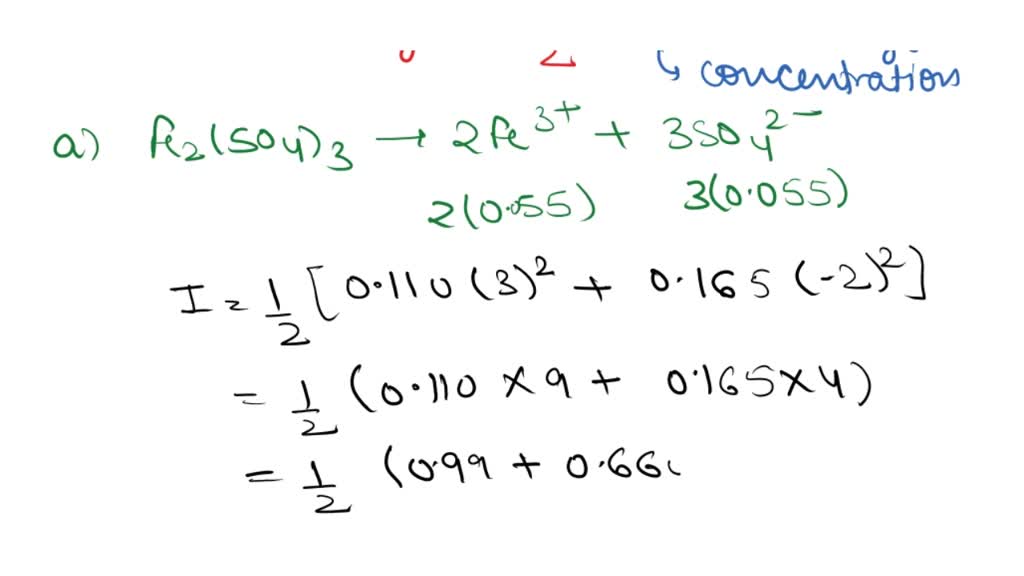 ↳ concentration
a) Fe₂(SO₄)₃ → 2Fe³⁺ + 3SO₄²⁻
2(0.055) 3(0.055)
I = 1/2 [0.110 (3)² + 0.165 (-2)²]
= 1/2 (0.110 × 9 + 0.165 × 4)
= 1/2 (0.99 + 0.66